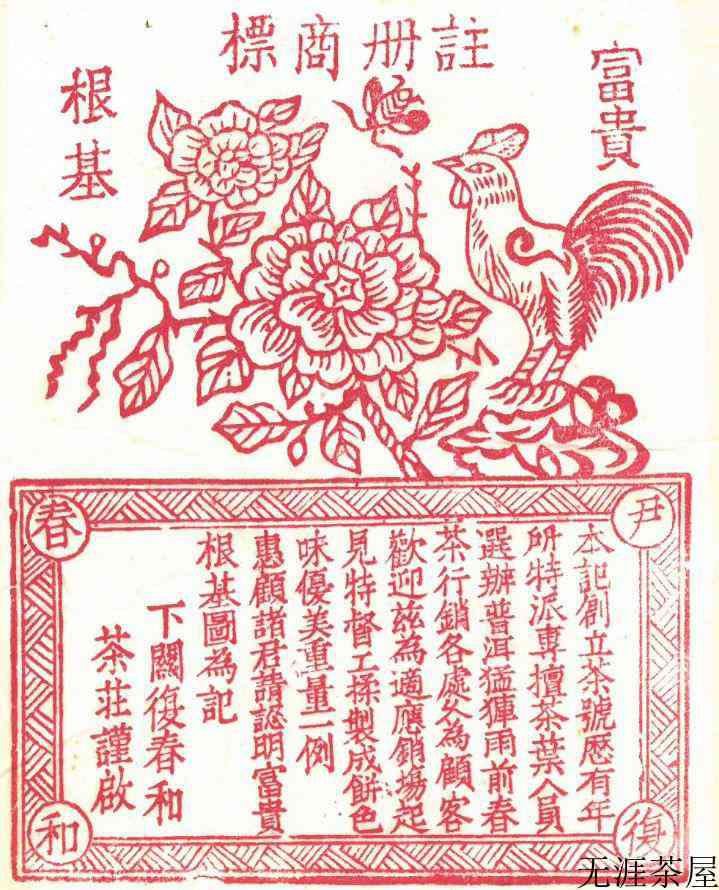 註册商標
富貴
根基
尹
復
春
和
本記創立茶號歷有年
所特派專擅茶葉人員
選辦普洱猛𤠶雨前春
茶行銷各處久為顧客
歡迎兹為適應銷場起
見特督工揉製成餅色
味優美重量一例
惠顧諸君請認明富貴
根基圖為記
下關復春和
茶莊謹啟
无涯茶屋